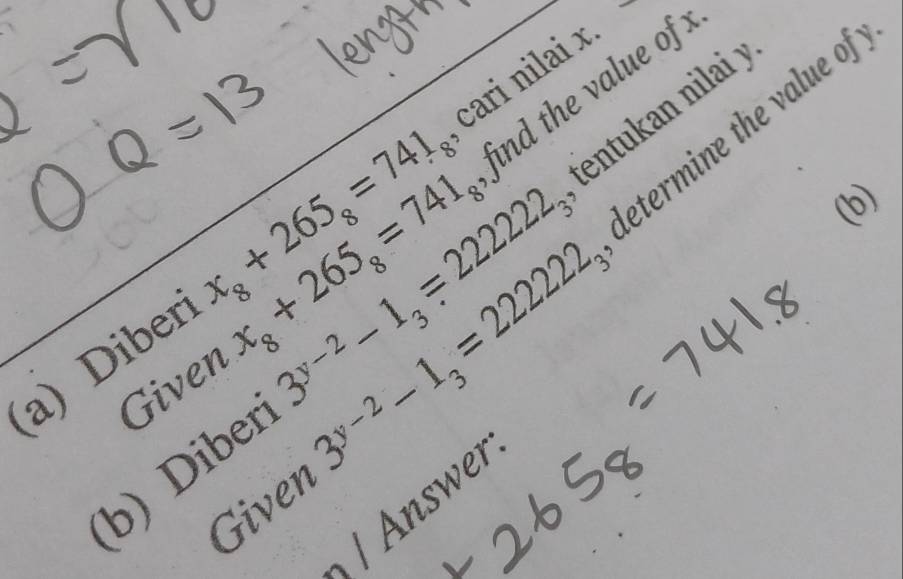 = √10
OQ = 13 length
(a) Diberi x₈ + 265₈ = 741₈, cari nilai x.
Given x₈ + 265₈ = 741₈, find the value of x.
(b) Diberi 3ʸ⁻² – 1₃ = 222222₃, tentukan nilai y.
Given 3ʸ⁻² – 1₃ = 222222₃, determine the value of y.
/ Answer:
(b)
+ 265₈ = 741₈